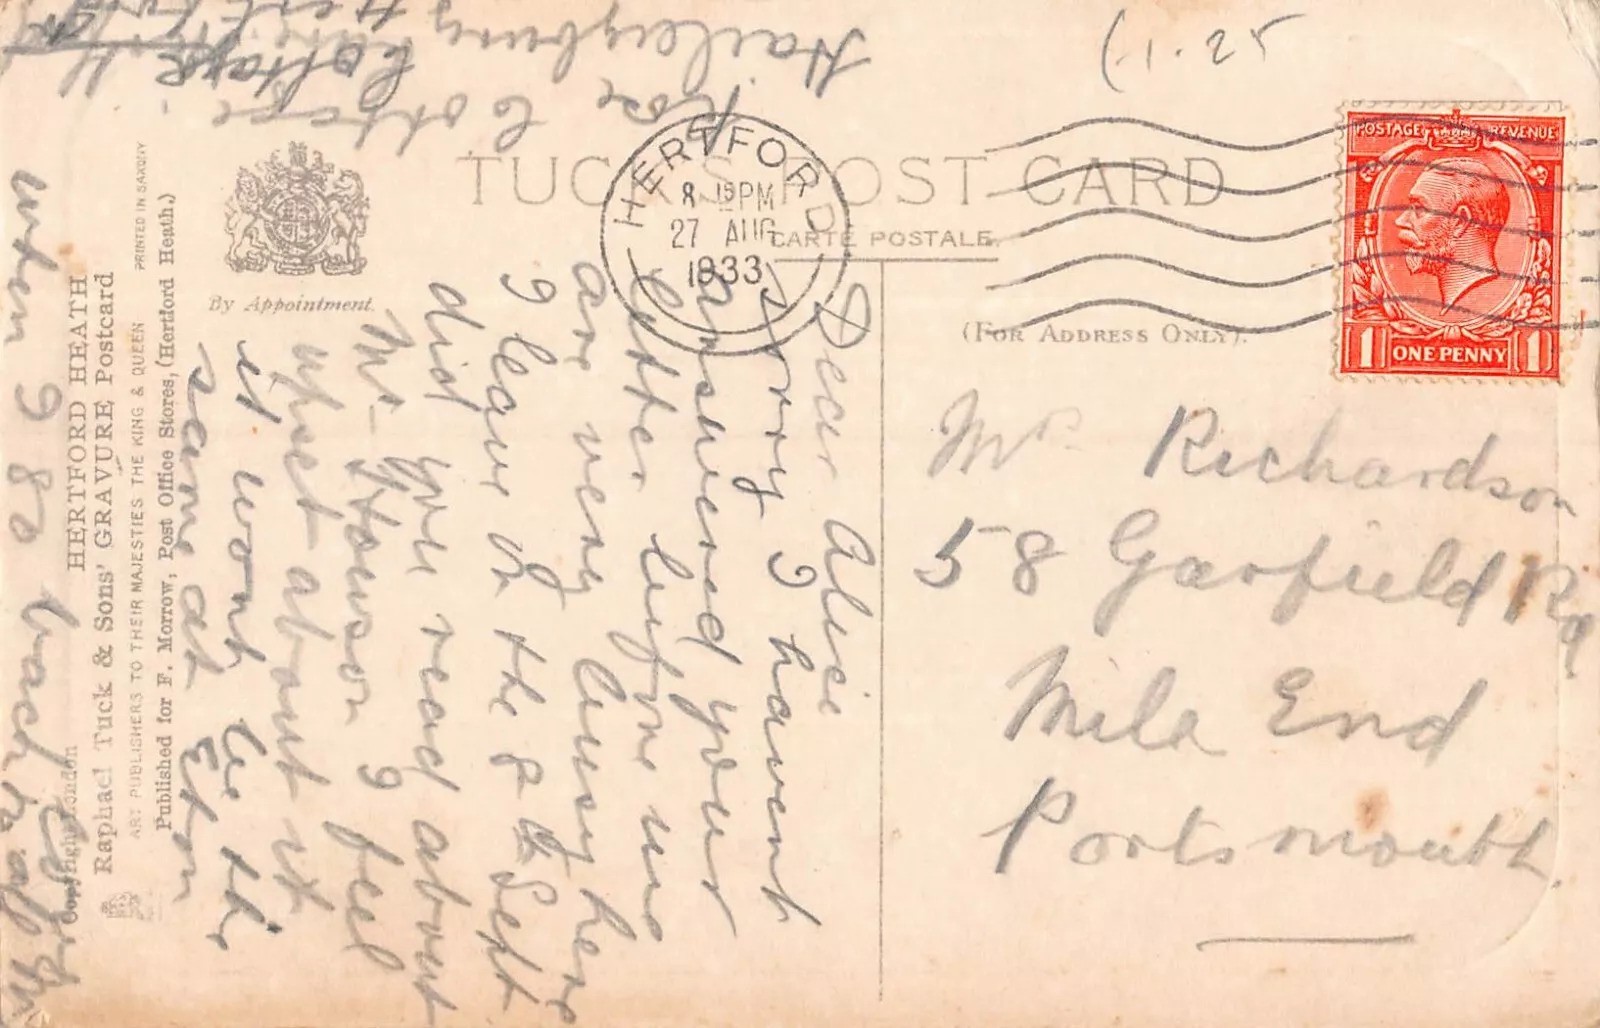 Hailey
Rose Cottage
Haileybury
Hertford
(-1.25
TUCK'S POST CARD
CARTE POSTALE.
(FOR ADDRESS ONLY).
HERTFORD
8 15PM
27 AUG
1933
POSTAGE REVENUE
1 ONE PENNY 1
Mrs Richardson
58 Garfield Rd
Mile End
Portsmouth
Dear Alice
Sorry I havent
answered your
letter before we
are very busy here
I leave on the 8th Sept
did you read about
Mr Howson I feel
upset about it
it wont be the
same at Eton
when I go back
By Appointment.
Published for F. Morrow, Post Office Stores, (Hertford Heath.)
ART PUBLISHERS TO THEIR MAJESTIES THE KING & QUEEN PRINTED IN SAXONY
Raphael Tuck & Sons' GRAVURE Postcard
HERTFORD HEATH
Copyright London